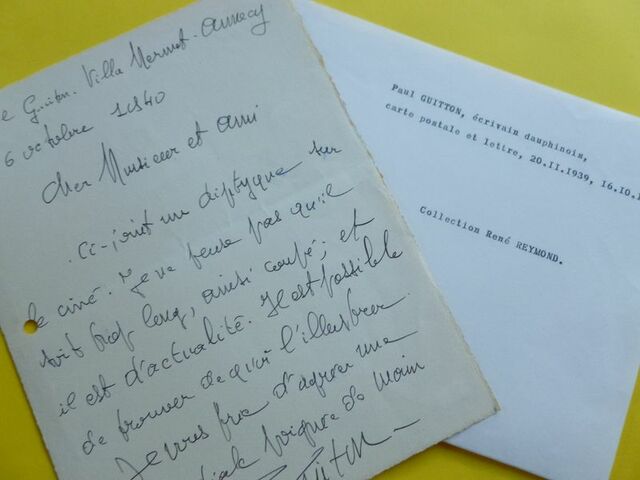 e Guitton. Villa Mermet. Annecy
6 octobre 1940
Cher Monsieur et ami
Ci-joint un diptyque sur
le ciné. Je ne pense pas qu'il
soit trop long, ainsi coupé; et
il est d'actualité. Il est possible
de trouver de qui l'illustrer
Je vous prie d'agréer une
diale poignée de main
Guitton
Paul GUITTON, écrivain dauphinois,
carte postale et lettre, 20.II.1939, 16.10.1
Collection René REYMOND.